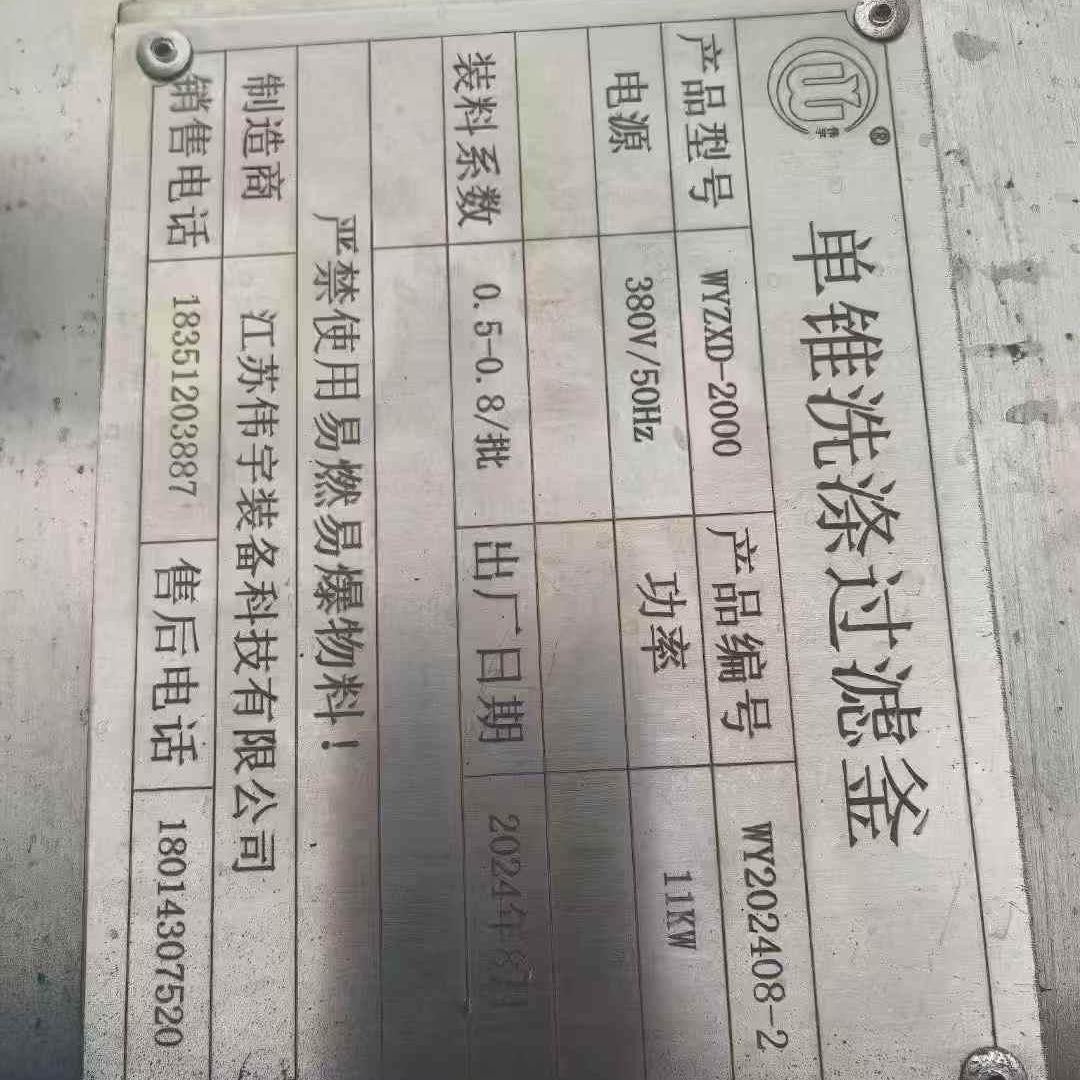 伟宇
®
单锥洗涤过滤釜
产品型号 WYZXD-2000 产品编号 WY202408-2
电源 380V/50Hz 功率 11KW
装料系数 0.5-0.8/批 出厂日期 2024年8月
严禁使用易燃易爆物料！
制造商 江苏伟宇装备科技有限公司
销售电话 18351203887 售后电话 18014307520